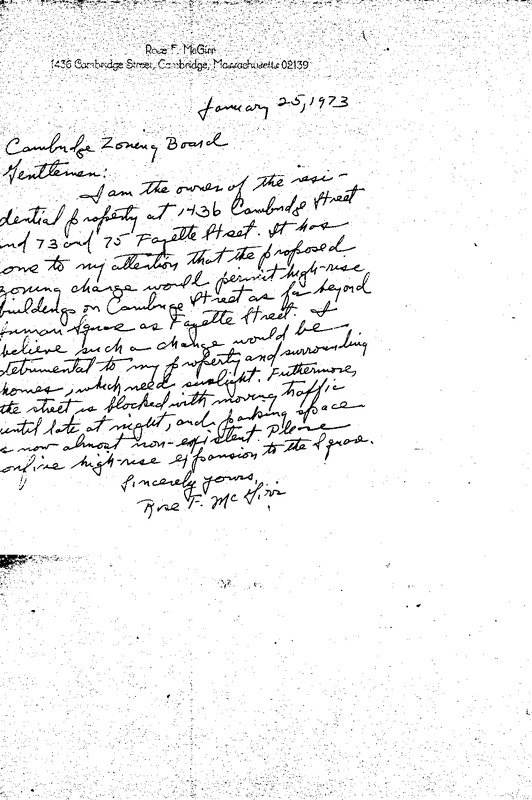 Rose F. McGirr
1436 Cambridge Street, Cambridge, Massachusetts 02139
January 25, 1973
Cambridge Zoning Board
Gentlemen:
I am the owner of the resi-
dential property at 1436 Cambridge Street
nd 73 and 75 Fayette Street. It has
ome to my attention that the proposed
zoning change would permit high-rise
buildings on Cambridge Street as far beyond
Inman Square as Fayette Street. I
believe such a change would be
detrimental to my property and surrounding
homes, which need sunlight. Futhermore,
the street is blocked with moving traffic
until late at night, and parking space
s now almost non-existent. Please
onfine high-rise expansion to the Square.
Sincerely yours,
Rose F. McGirr